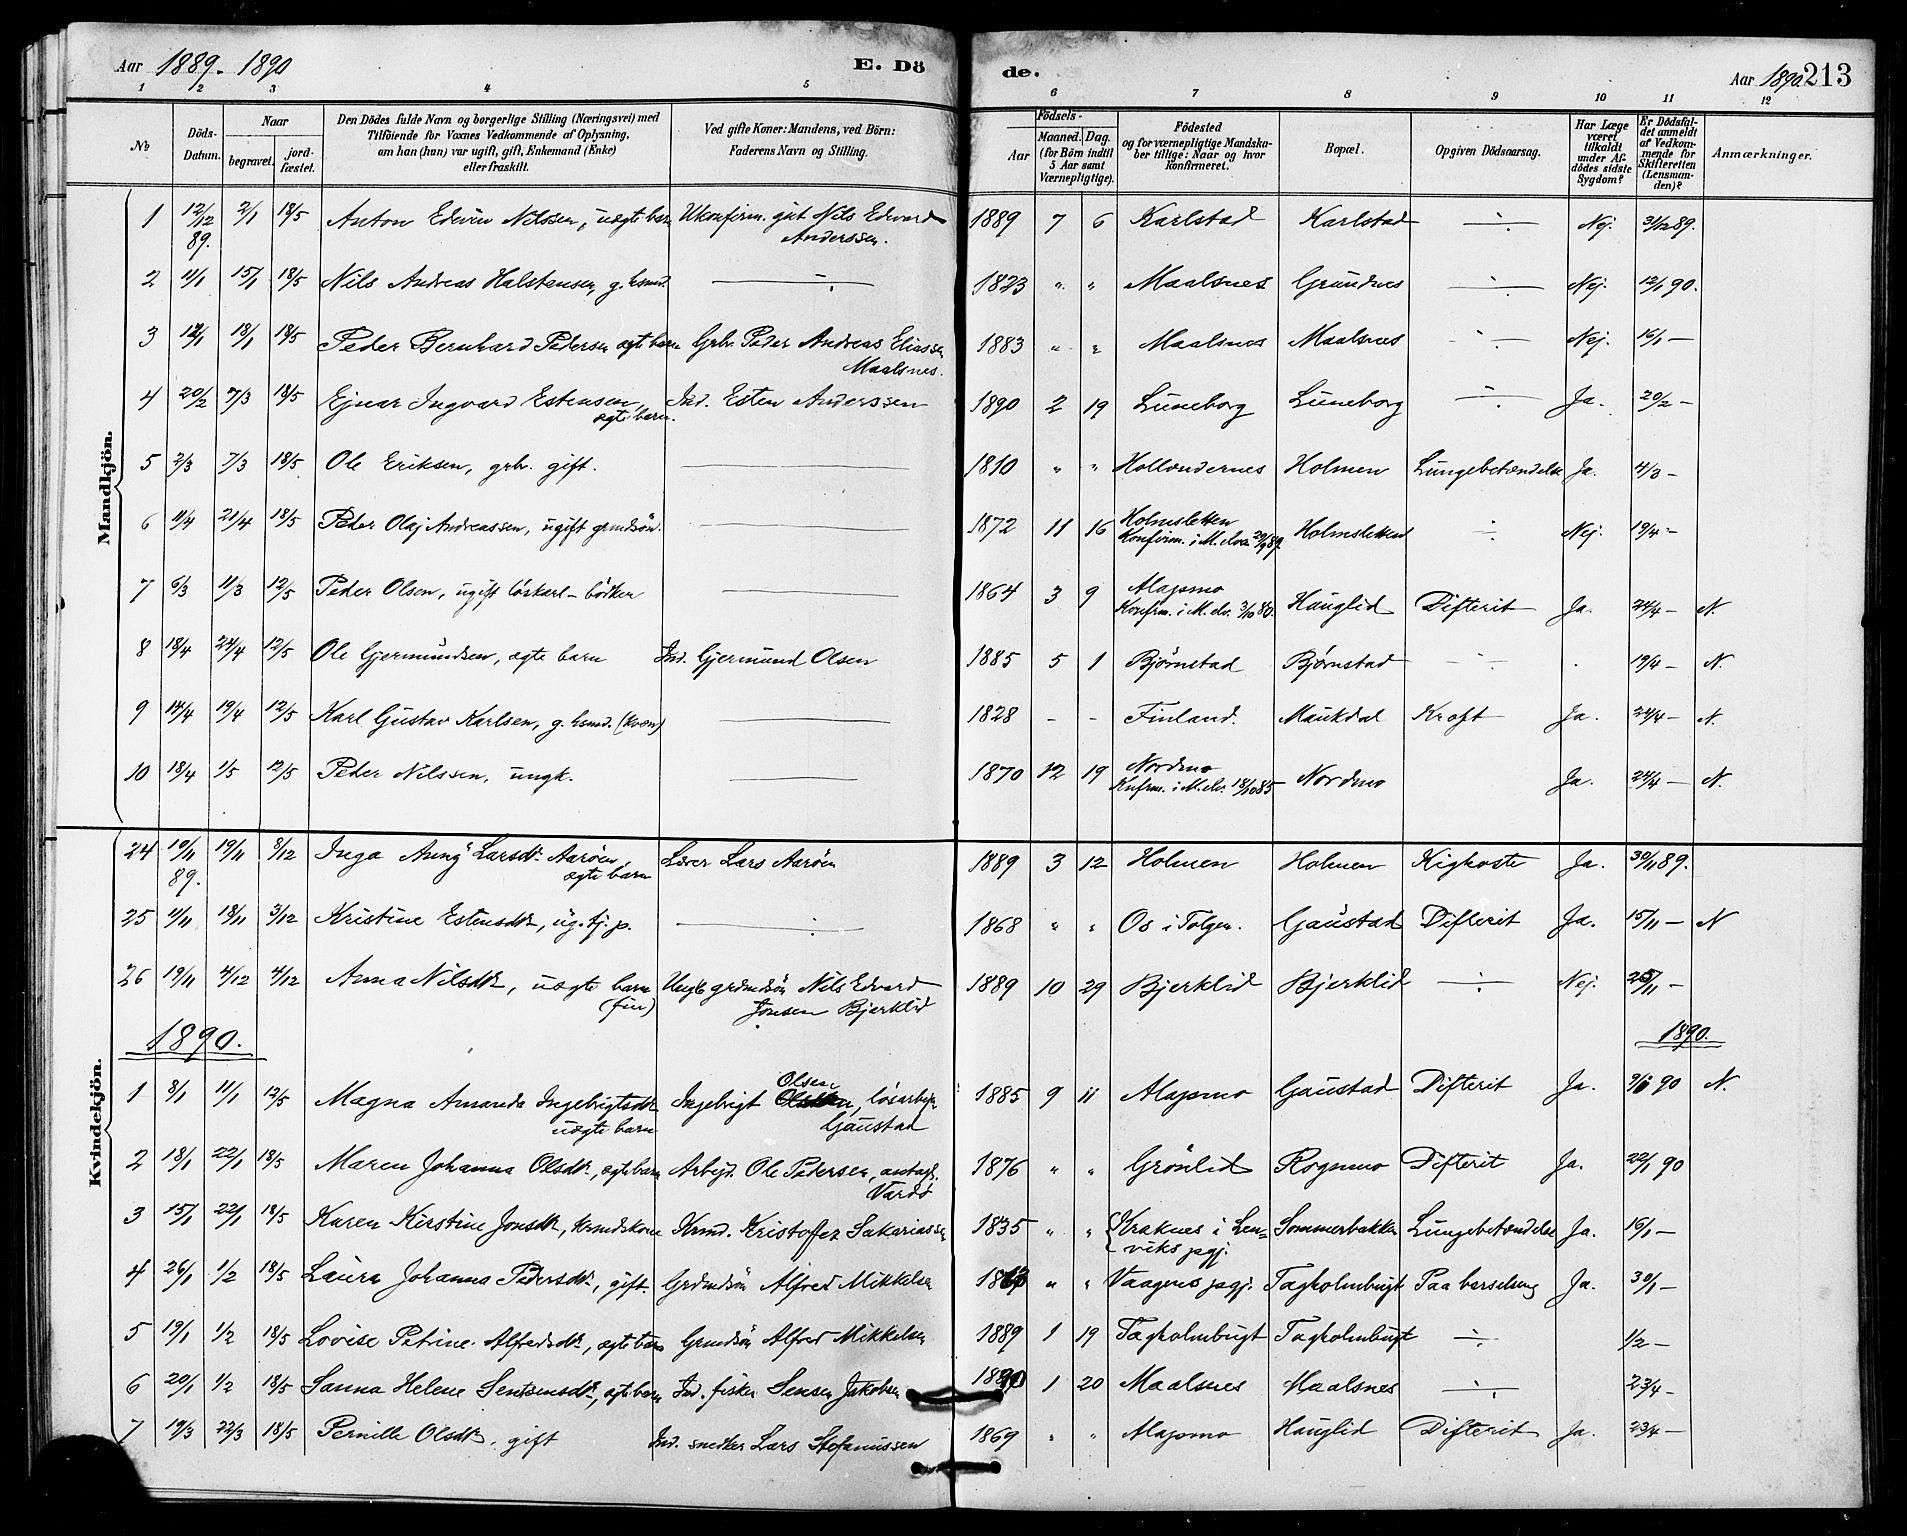 Aar 1889. 1890 E. Döde. Aar 1890. 213
1 2 3 4 5 6 7 8 9 10 11 12
No Döds-Datum. Naar begravet. jord-fæstet. Den Dödes fulde Navn og borgerlige Stilling (Næringsvei) med Tilföiende for Voxnes Vedkommende af Oplysning, om han (hun) var ugift, gift, Enkemand (Enke) eller fraskilt. Ved gifte Koner: Mandens, ved Börn: Faderens Navn og Stilling. Födsels- Aar Maaned. Dag. (for Börn indtil 5 Aar samt Værnepligtige). Födested og for værnepligtige Mandskaber tillige: Naar og hvor konfirmeret. Bopæl. Opgiven Dödsaarsag. Har Læge været tilkaldt under Afdödes sidste Sygdom? Er Dödsfaldet anmeldt af Vedkommende for Skifteretten (Lensmanden)? Anmærkninger.
Mandkjön.
1 12/12 89. 2/1 18/5 Anton Edvin Nilssen, uægte barn Ukonfirm. gut Nils Edvard Anderssen. 1889 7 6 Karlstad Karlstad ÷ Nej. 31/12 89.
2 11/1 15/1 18/5 Nils Andreas Halstensen, g. hsmd. ÷ 1823 " " Maalsnes Grundnes ÷ Nej. 12/1 90.
3 12/1 18/1 18/5 Peder Bernhard Pedersen ægte barn Grbr. Peder Andreas Eliassen Maalsnes. 1883 " " Maalsnes Maalsnes ÷ Nej. 16/1 —
4 20/2 7/3 18/5 Ejnar Ingvard Estensen, ægte barn. Ind. Esten Anderssen 1890 2 19 Luneborg Luneborg ÷ Ja. 20/2 —
5 2/3 7/3 18/5 Ole Eriksen, grbr. gift. — 1810 " " Hollendernes Holmen Lungebetændelse Ja. 4/3 —
6 11/4 21/4 18/5 Peder Olaj Andreassen, ugift grmdsön. — 1872 11 16 Holmsletten Konfirm. i M.elven 29/9 89. Holmsletten ÷ Nej. 19/4 —
7 6/3 11/3 12/5 Peder Olsen, ugift löskarl – bödker — 1864 3 9 Alapmo Konfrm. i M.elv. 3/10 80. Hauglid Difterit Ja. 24/4 — N.
8 18/4 24/4 12/5 Ole Gjermundsen, ægte barn Ind. Gjermund Olsen 1885 5 1 Bjørnstad Bjørnstad ÷ . 19/4 — N.
9 14/4 19/4 12/5 Karl Gustav Karlsen, g. hsmd. (Kvæn) — 1828 - - Finland. Maukdal Kræft Ja. 24/4 — N.
10 18/4 1/5 12/5 Peder Nilssen, ungk. — 1870 12 19 Nordmo Knfrm. i M.elv. 18/10 85 Nordmo Ja. 24/4 — N.
Kvindekjön.
24 10/11 89. 19/11 8/12 Inga Larsdtr. Aarøen, ægte barn Lærer Lars Aarøen 1889 3 12 Holmen Holmen Kighoste Ja. 30/11 89.
25 11/11 18/11 3/12 Kristine Estensdtr, ug. tj. p. ÷ 1868 " " Os i Tolgen. Gaustad Difterit Ja. 15/11 — N
26 19/11 4/12 4/12 Anna Nilsdtr, uægte barn (fin) Ungk grdmdsön Nils Edvard Jonsen Bjerklid 1889 10 29 Bjerklid Bjerklid ÷ Nej. 25/11 —
1890. 1890.
1 8/1 11/1 12/5 Magna Amanda Ingebrigtsdtr uægte barn Ingebrigt Olsen, løsarbejd Gaustad 1885 9 11 Alapmo Gaustad Difterit Ja. 9/1 90 N.
2 18/1 22/1 18/5 Maren Johanna Olsdtr., ægte barn Arbejd. Ole Pedersen, antagl. Vardö 1876 " " Grönlid Rognmo Difterit Ja. 22/1 90
3 15/1 22/1 18/5 Karen Kirstine Jonsdtr, hsmdskone Hsmd. Kristofer Sakariassen 1835 " " Kraknes i Lenviks pgj. Sommerbakken Lungebetændelse Ja. 16/1 —
4 26/1 1/2 18/5 Laura Johanna Pedersdtr., gift. Grdmdsön Alfred Mikkelsen " " Vaagens pgj. Tagholmbugt Paa barselseng Ja. 30/1 —
5 19/1 1/2 18/5 Lovise Petrine Alfredsdtr., ægte barn Grmdsön Alfred Mikkelsen 1889 1 19 Tagholmbugt Tagholmbugt ÷ 1/2 —
6 20/1 1/2 18/5 Sanna Helene Sentsensdtr., ægte barn Ind. fisker Sensen Jakobsen 1890 1 20 Maalsnes Maalsnes ÷ 23/4 —
7 19/3 22/3 18/5 Pernille Olsdtr. gift Ind. snedker Lars Stefanussen 1869 " " Alapmo Hauglid Difterit Ja. 23/4 —